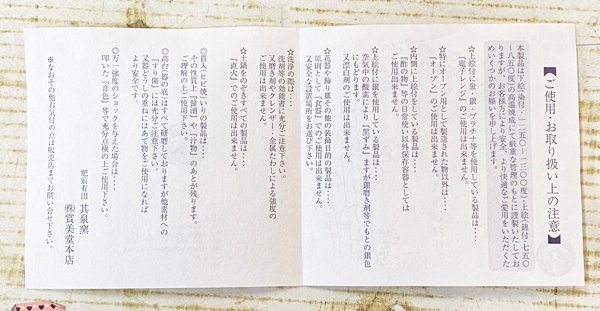 【ご使用・お取り扱い上の注意】
本製品は下絵(染付・一二五〇~一三〇〇度)・上絵(錦付・七五〇
~八五〇度)の高温焼成にて厳重な管理のもとに謹製いたしてお
りますが、お客様方により安全により快適なご愛用をいただくた
めいくつかのお願いを申し上ます。
☆上絵付に金・銀・プラチナ等を使用している製品は‥‥
「電子レンジ」のご使用は出来ません。
☆特にオーブン用として製造された物以外は‥‥
「オーブン」のご使用は出来ません。
☆内側に上絵付をしている製品は‥‥
「酢の物」等の日常使い以外保存容器としては
ご使用出来ません。
☆上絵付に銀を使用している製品は‥‥
空気中の酸素により「黒ずみ」ますが銀磨き剤等でもとの銀色
にもどります。
又漂白剤のご使用は出来ません。
☆花器や飾り皿その他の装飾目的の製品は‥‥
原則として「食器」でのご使用は出来ません。
又安全な設置場所をお選び下さい。
☆洗浄の際は‥‥
洗剤等の効能書に充分ご注意下さい。
又磨き剤やクレンザー・金属たわしによる強度の
ご使用は出来ません。
☆土鍋をのぞきすべての製品は‥‥
「直火」でのご使用は出来ません。
◎貫入(ヒビ焼)いりの製品は‥‥
その性質上「醤油」や「汁物」のあとが残ります。
ご理解の上ご使用下さい。
◎高台(器の底)はすべて研磨しておりますが他素材への
「すり傷」には充分ご注意下さい。
又器どうしの重ねにはあて物をご使用になれば
より安全です。
◎万一強度のショックを与えた場合は‥‥
叩いた「音色」等で充分点検の上ご使用下さい。
※なおその他お気付の点は販売店までお問い合せ下さい。
肥前有田 其泉窯
㈱賞美堂本店